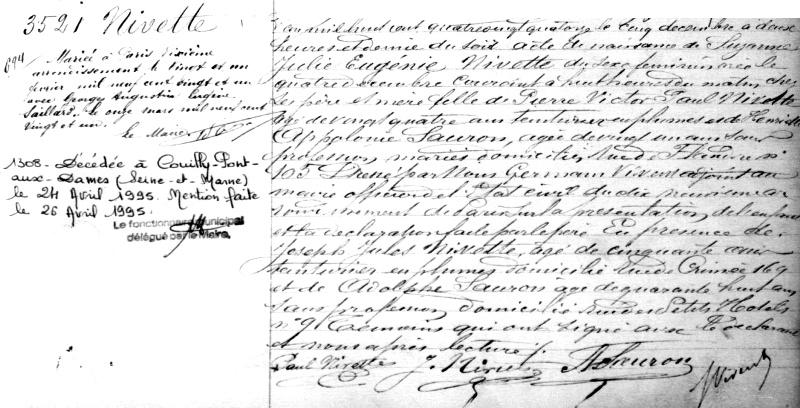 3521 Nivette
694
Mariée à Paris
arrondissement le vingt et un
février mil neuf cent vingt et un
avec Georges Augustin
Saillard. Le onze mars mil neuf cent
vingt et un.
Le Maire
1308 - Décédée à Couilly-Pont-
aux-Dames (Seine-et-Marne)
le 24 Avril 1995. Mention faite
le 26 Avril 1995.
Le fonctionnaire municipal
délégué par le Maire,
L'an mil huit cent quatre vingt quatorze le cinq décembre à deux
heures et demie du soir acte de naissance de Suzanne
Julie Eugénie Nivette du sexe féminin née le
quatre décembre courant à huit heures du matin chez
ses père et mère fille de Pierre Victor Paul Nivette
âgé de vingt quatre ans teinturier en plumes et de
Appolonie Sauron, agée de vingt un ans sans
profession, mariés domiciliés rue de Flandre n°
105. Dressé par Nous Germain Vivent adjoint au
maire officier de l'Etat civil du dix neuvième ar
rondissement de Paris sur la présentation de l'enfant
et la déclaration faite par le père En présence de
Joseph Jules Nivette, agé de cinquante ans
teinturier en plumes domicilié rue de Crimée 169
et de Adolphe Sauron agé de quarante huit ans
sans profession domicilié rue des Petits Hotels
n° 9 Témoins qui ont signé avec le déclarant
et nous après lecture.
Paul Nivette J. Nivette A Sauron Vivent